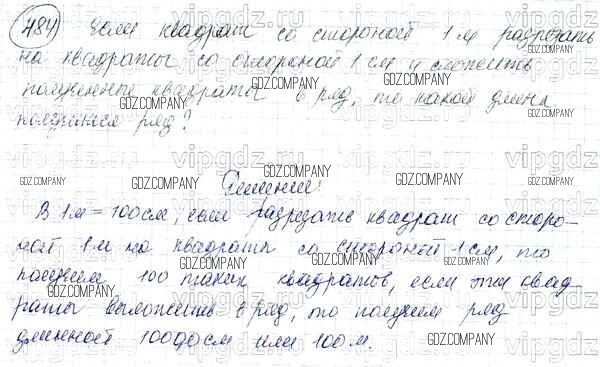 484) Если квадрат со стороной 1 м разрезать
на квадраты со стороной 1 см и сложить
полученные квадраты в ряд, то какой длины
получится ряд?
Решение:
В 1 м = 100 см, если разрезать квадрат со сторо-
ной 1 м на квадраты со стороной 1 см, то
получим 100 таких квадратов, если эти квад
раты выложить в ряд, то получим ряд
длинной 10000 см или 100 м.